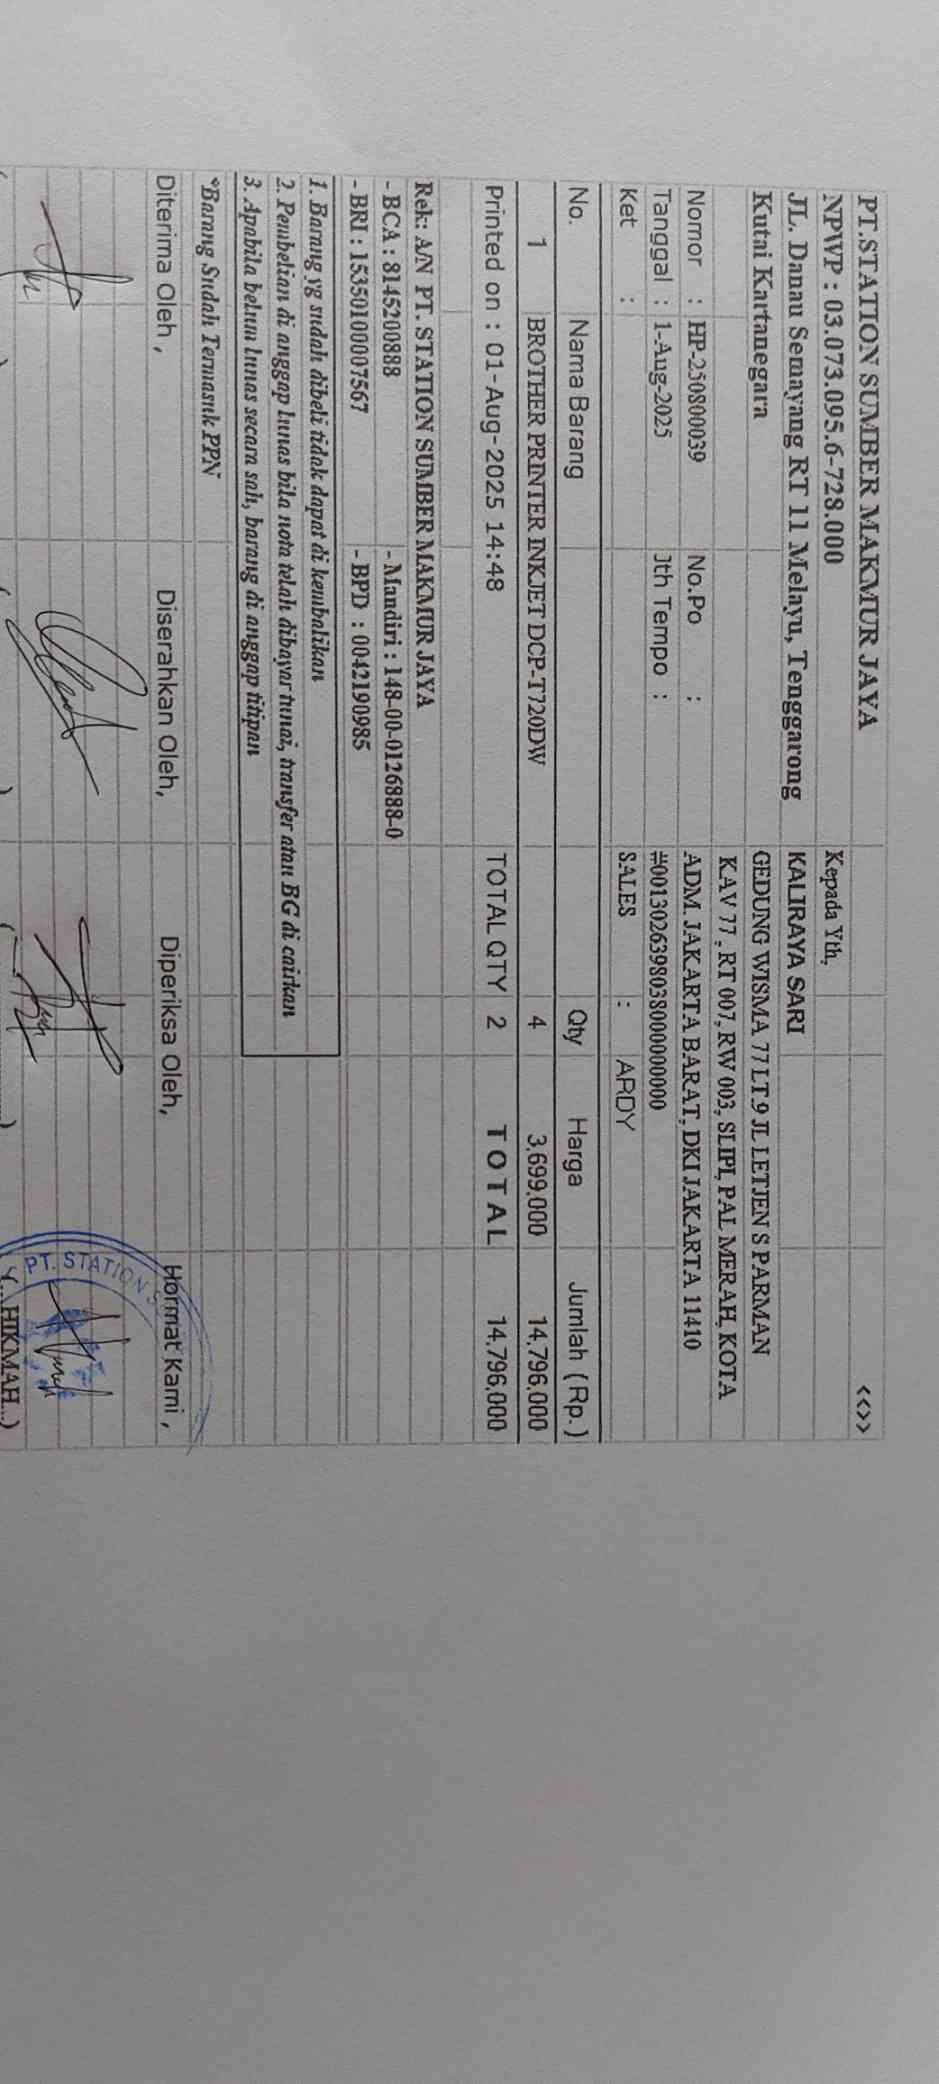 <<>>
PT.STATION SUMBER MAKMUR JAYA
NPWP : 03.073.095.6-728.000
JL. Danau Semayang RT 11 Melayu, Tenggarong
Kutai Kartanegara
Kepada Yth,
KALIRAYA SARI
GEDUNG WISMA 77 LT.9 JL LETJEN S PARMAN
KAV 77 , RT 007, RW 003, SLIPI, PAL MERAH, KOTA
ADM. JAKARTA BARAT, DKI JAKARTA 11410
#0013026398038000000000
Nomor : HP-250800039 No.Po :
Tanggal : 1-Aug-2025 Jth Tempo :
Ket : SALES : ARDY
No. Nama Barang Qty Harga Jumlah ( Rp. )
1 BROTHER PRINTER INKJET DCP-T720DW 4 3,699,000 14,796,000
Printed on : 01-Aug-2025 14:48 TOTAL QTY 2 TOTAL 14,796,000
Rek: A/N PT. STATION SUMBER MAKMUR JAYA
- BCA : 8145200888 - Mandiri : 148-00-0126888-0
- BRI : 153501000007567 - BPD : 0042190985
1. Barang yg sudah dibeli tidak dapat di kembalikan
2. Pembelian di anggap lunas bila nota telah dibayar tunai, transfer atau BG di cairkan
3. Apabila belum lunas secara sah, barang di anggap titipan
*Barang Sudah Termasuk PPN
Diterima Oleh , Diserahkan Oleh, Diperiksa Oleh, Hormat Kami ,
PT. STATION S
(...HIKMAH...)